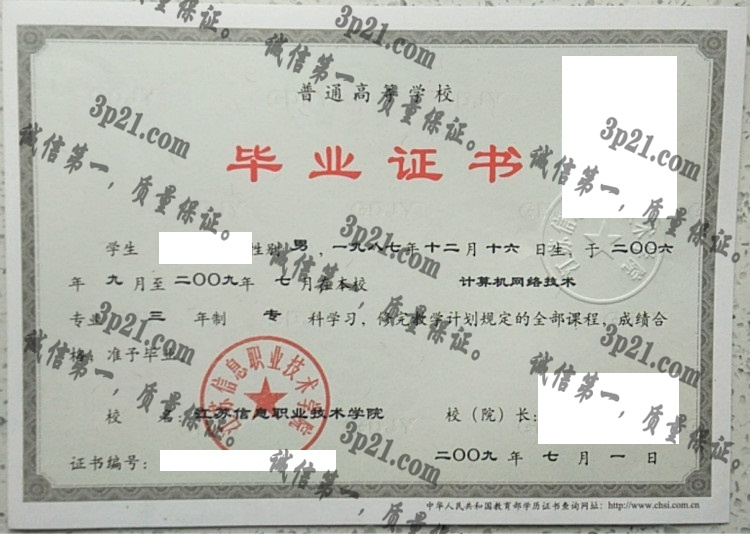 普通高等学校
毕业证书
学生 性别 男 一九八七年十二月十六日生，于二〇〇六
年九月至二〇〇九年七月在本校 计算机网络技术
专业 三 年制 专 科学习，修完教学计划规定的全部课程，成绩合
格，准予毕业
校 名：江苏信息职业技术学院 校（院）长：
证书编号： 二〇〇九年七月一日
中华人民共和国教育部学历证书查询网址：http://www.chsi.com.cn
江苏信息职业技术学院
3p21.com
诚信第一，质量保证。
3p21.com
诚信第一，质量保证。
3p21.com
诚信第一，质量保证。
3p21.com
诚信第一，质量保证。
3p21.com
诚信第一，质量保证。
3p21.com
诚信第一，质量保证。
3p21.com
诚信第一，质量保证。
3p21.com
诚信第一，质量保证。